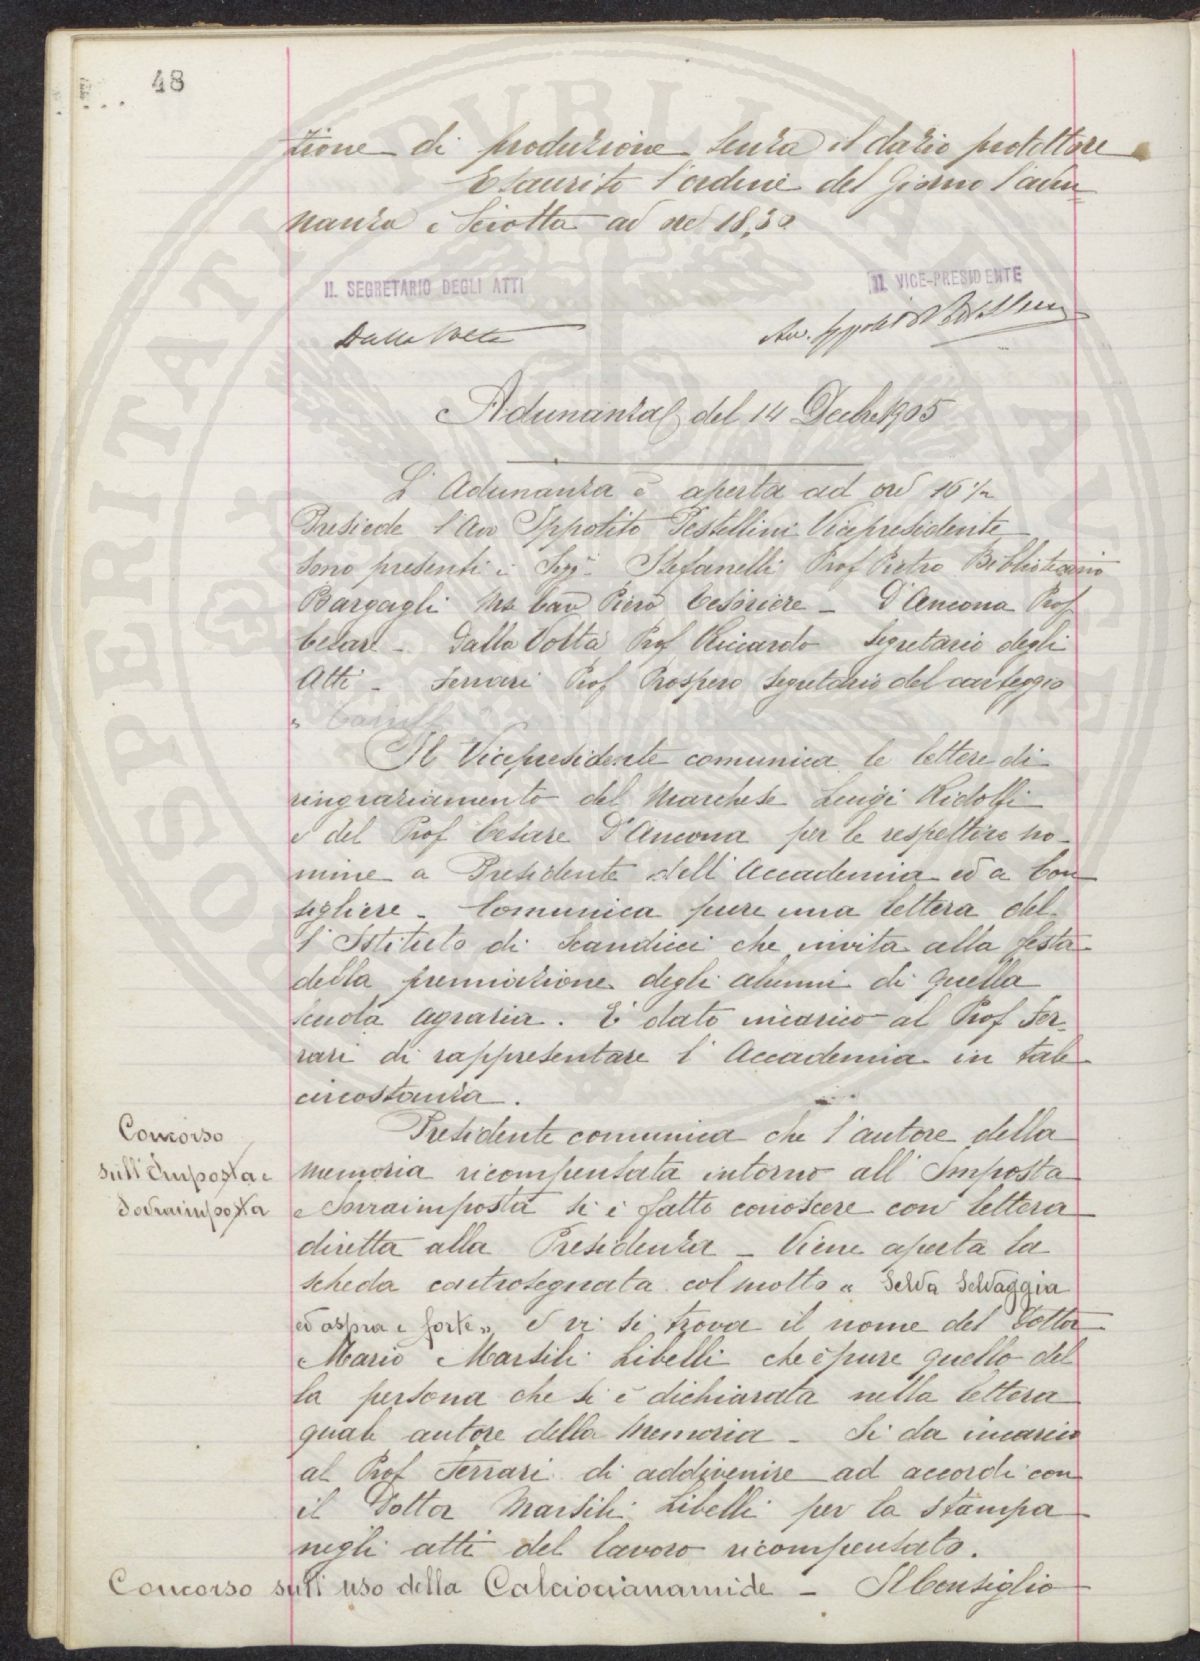 48
zione di produzione senza il dazio protettore
Esaurito l'ordine del Giorno l'adu=
nanza è sciolta ad ore 18,30
IL SEGRETARIO DEGLI ATTI
IL VICE-PRESIDENTE
Dalla Volta
Avv. Ippolito Pestellini
Adunanza del 14 Decbre 1905
L'Adunanza è aperta ad ore 16 1/2
Presiede l'Avv Ippolito Pestellini Vicepresidente
Sono presenti i Sigg. Stefanelli Prof Pietro Bibliotecario
Bargagli Ms Cav Piero Tesoriere - D'Ancona Prof
Cesare - Dalla Volta Prof Riccardo Segretario degli
Atti - Ferrari Prof Prospero Segretario del carteggio
Il Vicepresidente comunica le lettere di
ringraziamento del Marchese Luigi Ridolfi
e del Prof Cesare D'Ancona per le respettive no-
mine a Presidente dell'Accademia ed a Con
sigliere - Comunica pure una lettera del-
l'Istituto di Scandicci che invita alla festa
della premiazione degli alunni di quella
scuola agraria. E' dato incarico al Prof Fer-
rari di rappresentare l'Accademia in tale
circostanza.
Concorso
sull'Imposta e
Sovraimposta
Presidente comunica che l'autore della
memoria ricompensata intorno all'Imposta
e Sovraimposta si è fatto conoscere con lettera
diretta alla Presidenza - Viene aperta la
scheda controsegnata col motto « Selva Selvaggia
ed aspra e forte », e vi si trova il nome del Dottor
Mario Marsili Libelli che è pure quello del
la persona che si è dichiarata nella lettera
quale autore della Memoria - Si da incarico
al Prof Ferrari di addivenire ad accordi con
il Dottor Marsili Libelli per la stampa
negli atti del lavoro ricompensato.
Concorso sull'uso della Calciocianamide - Il Consiglio